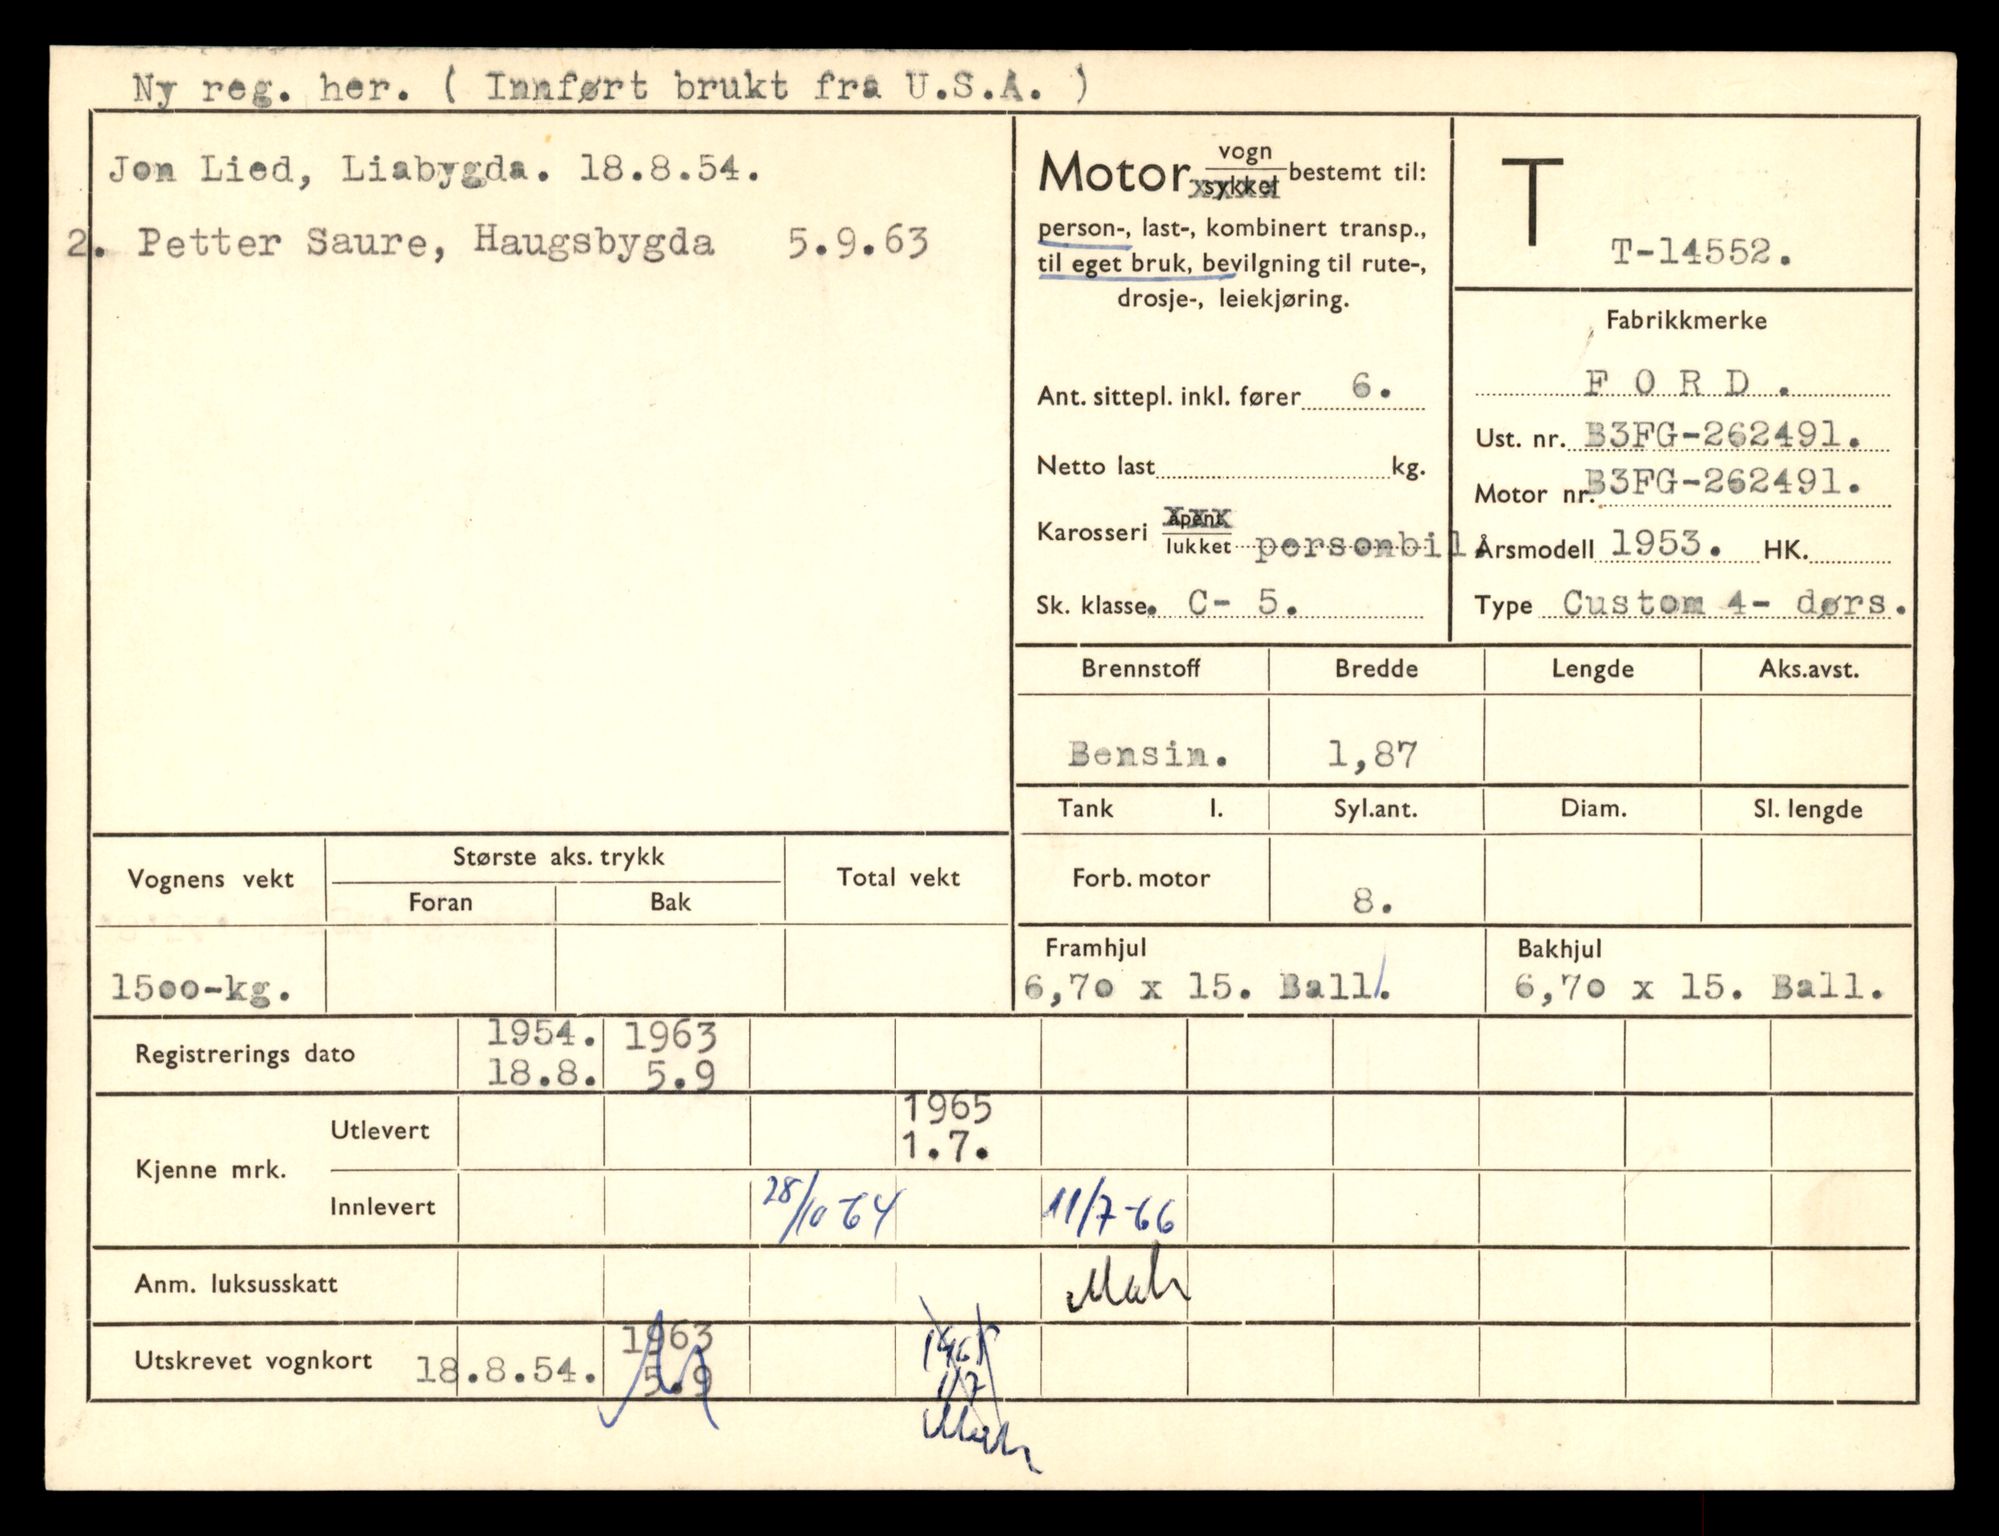 Ny reg. her. ( Innført brukt fra U.S.A. )
Jon Lied, Liabygda. 18.8.54.
2. Petter Saure, Haugsbygda 5.9.63
Motor vogn sykkel bestemt til:
person-, last-, kombinert transp.,
til eget bruk, bevilgning til rute-,
drosje-, leiekjøring.
Ant. sittepl. inkl. fører 6.
Netto last kg.
Karosseri åpent lukket personbil.
Sk. klasse. C- 5.
T
T-14552.
Fabrikkmerke
F O R D .
Ust. nr. B3FG-262491.
Motor nr. B3FG-262491.
Årsmodell 1953. HK.
Type Custom 4- dørs.
Brennstoff Bredde Lengde Aks.avst.
Bensin. 1,87
Tank l. Syl.ant. Diam. Sl. lengde
Forb. motor 8.
Framhjul Bakhjul
6,70 x 15. Ball. 6,70 x 15. Ball.
Vognens vekt Største aks. trykk Total vekt
Foran Bak
1500-kg.
Registrerings dato 1954. 1963
18.8. 5.9
Kjenne mrk.
Utlevert 1965
1.7.
Innlevert 28/10-64 11/7-66
Anm. luksusskatt
Utskrevet vognkort 18.8.54. 1963
5.9
1965
1/7